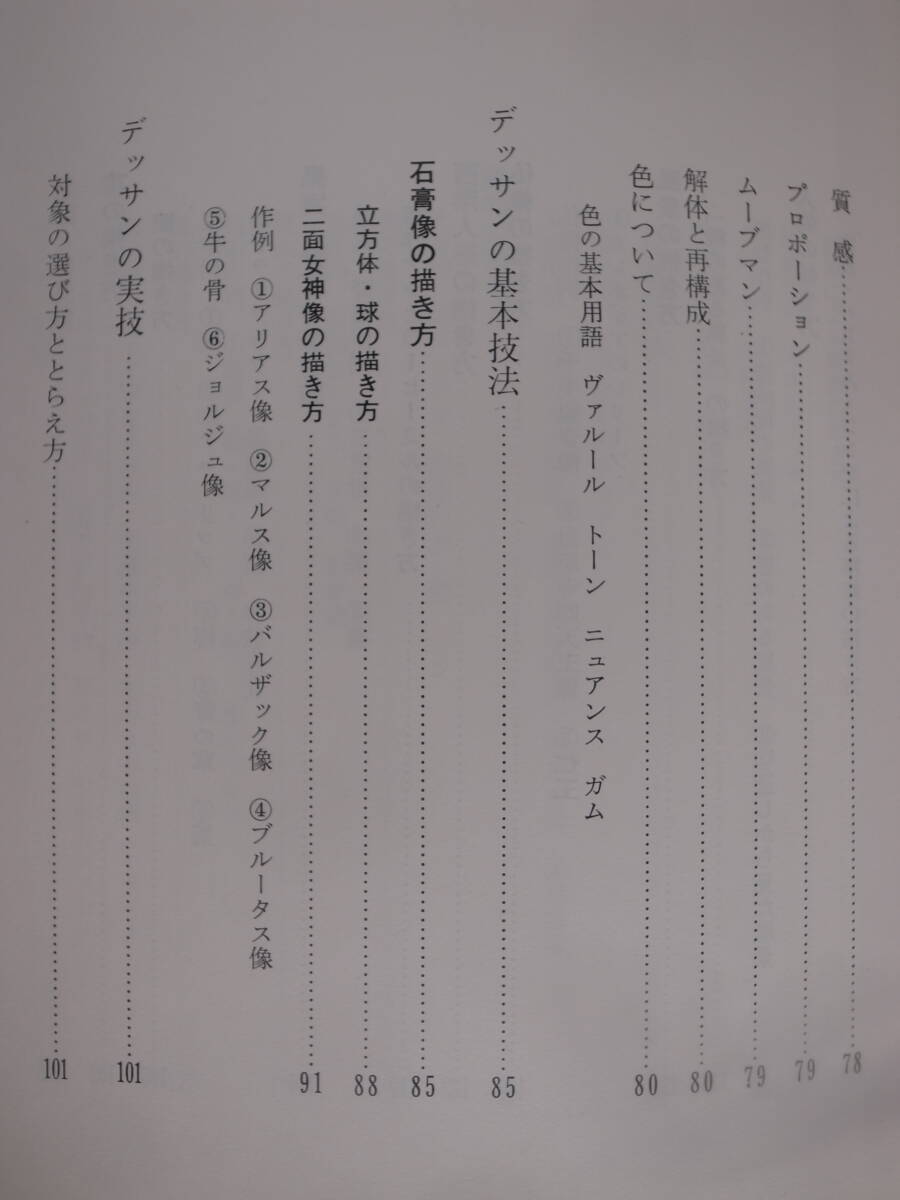 質感……………………78
プロポーション……………………79
ムーブマン……………………79
解体と再構成……………………80
色について……………………80
色の基本用語　ヴァルール　トーン　ニュアンス　ガム
デッサンの基本技法……………………85
石膏像の描き方……………………85
立方体・球の描き方……………………88
二面女神像の描き方……………………91
作例　①アリアス像　②マルス像　③バルザック像　④ブルータス像
⑤牛の骨　⑥ジョルジュ像
デッサンの実技……………………101
対象の選び方ととらえ方……………………101